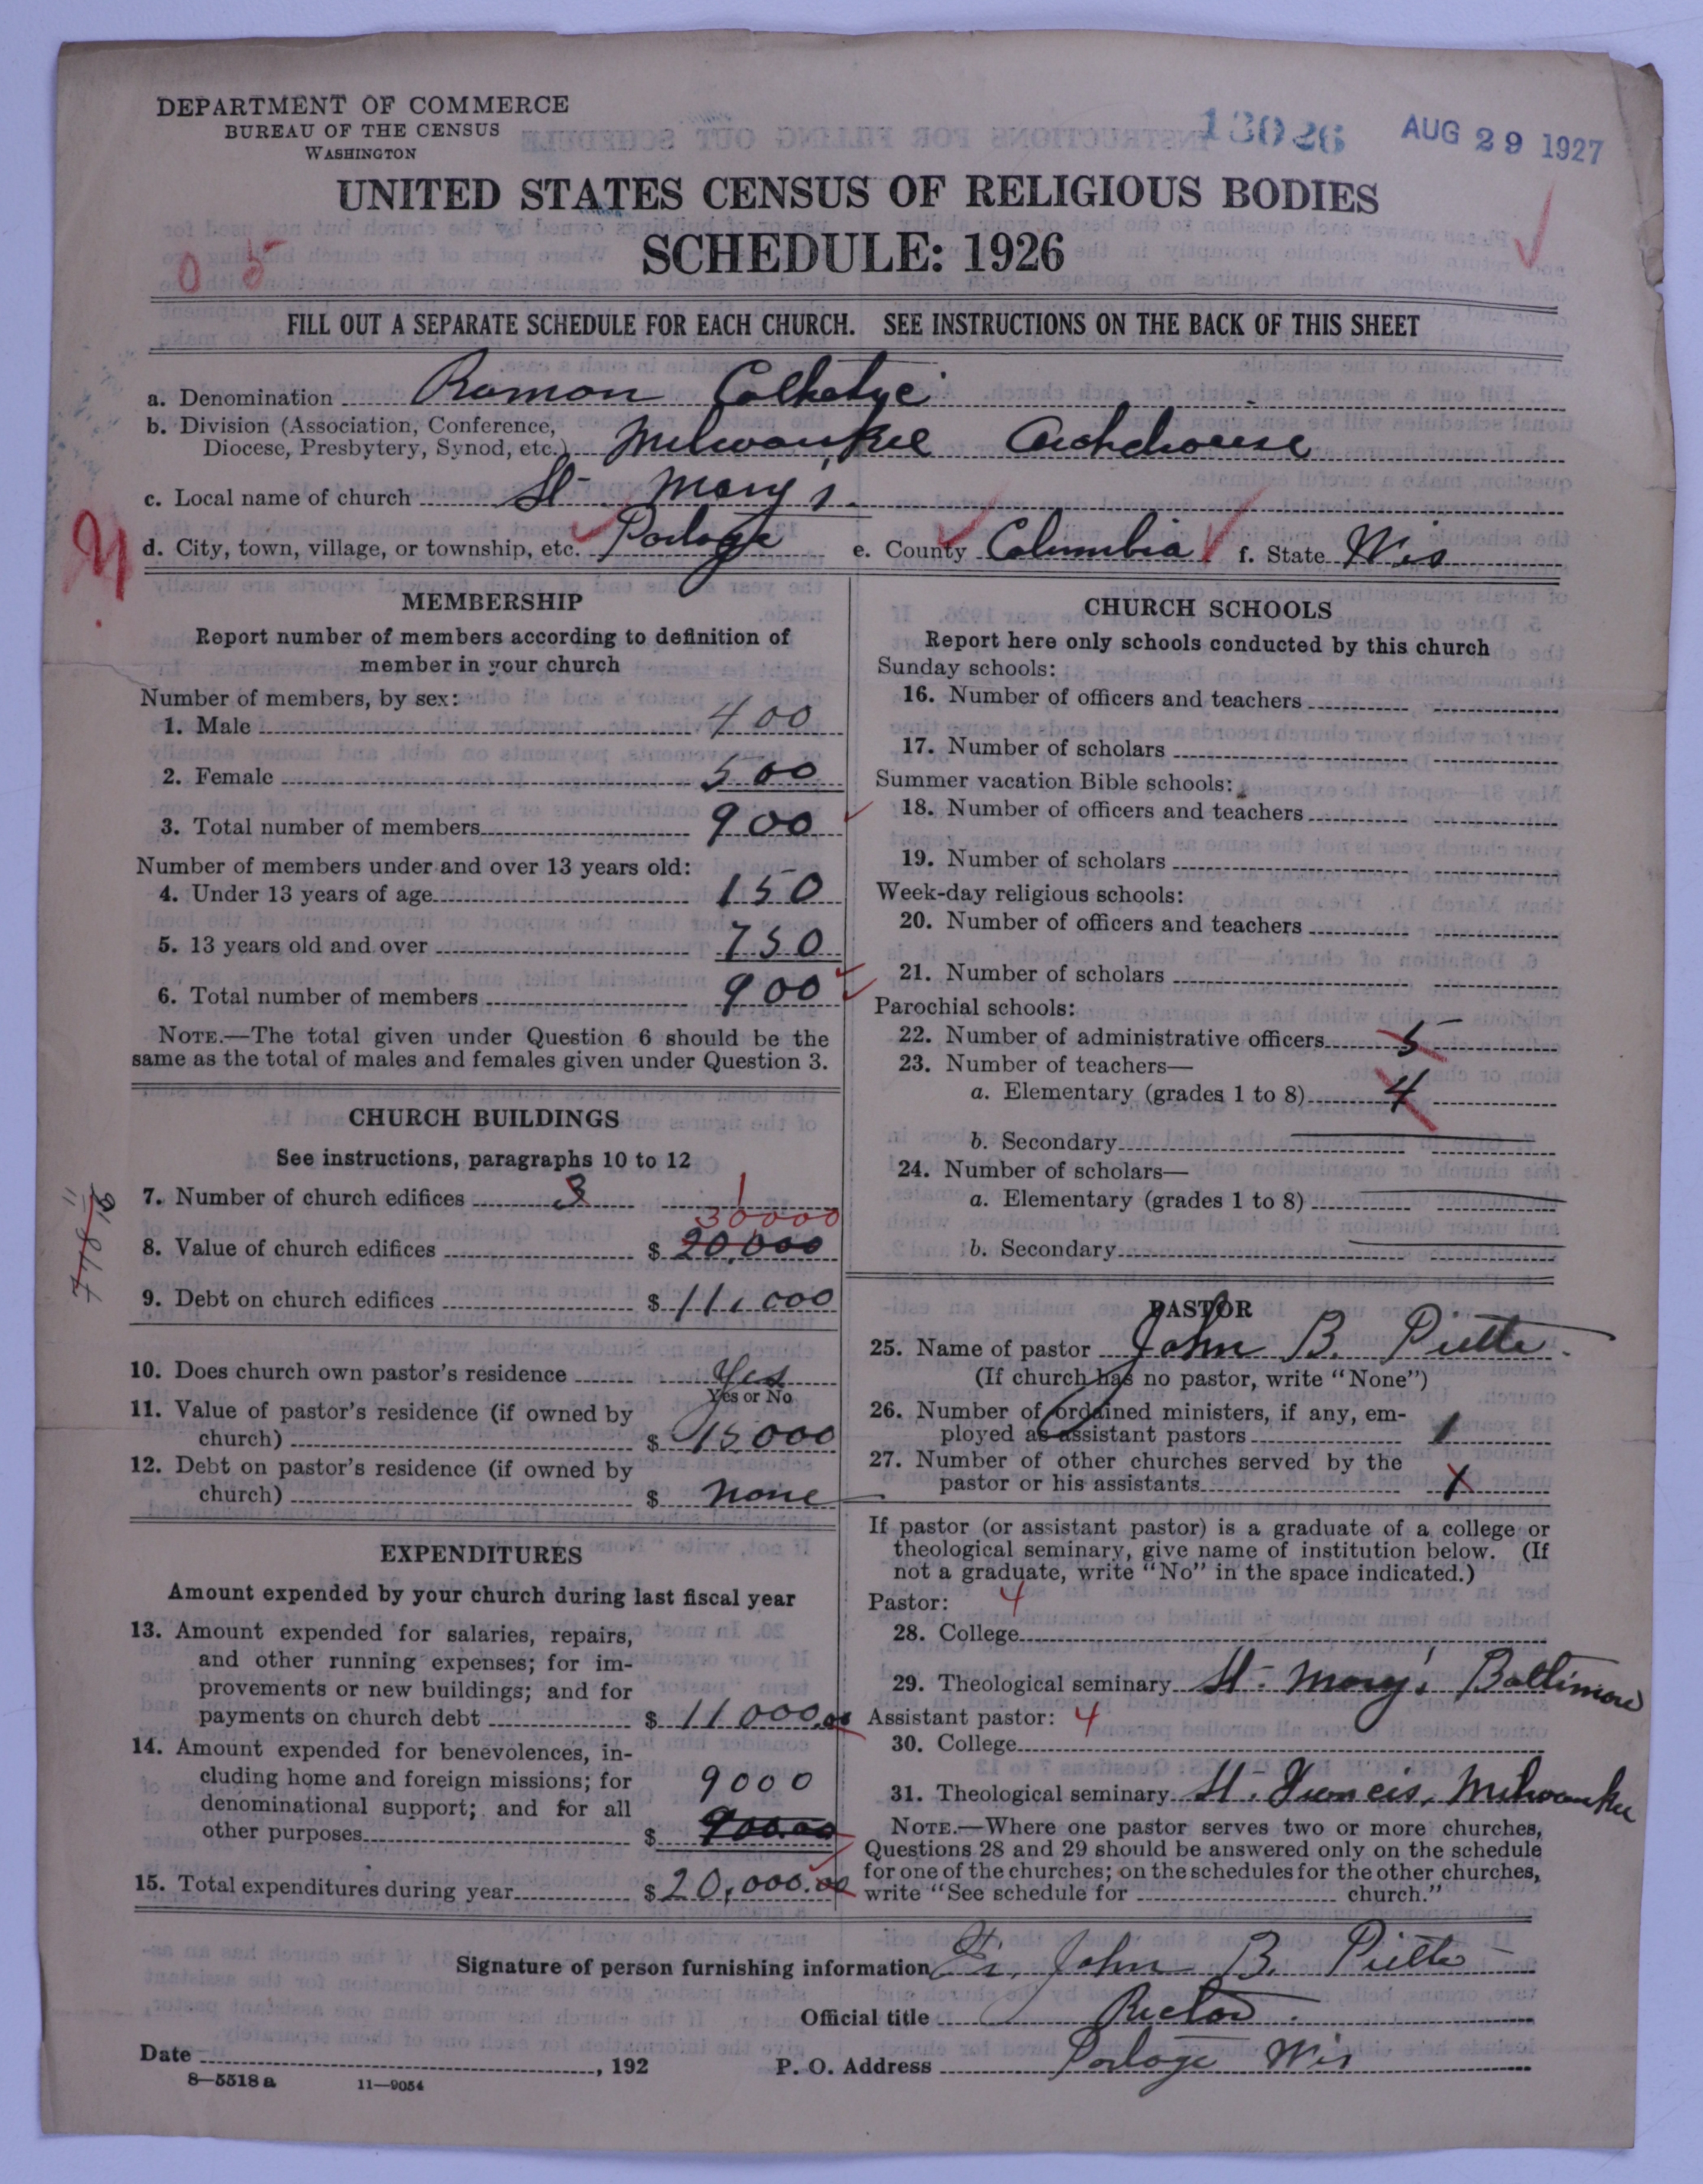 DEPARTMENT OF COMMERCE
BUREAU OF THE CENSUS
WASHINGTON
13026
AUG 29 1927
UNITED STATES CENSUS OF RELIGIOUS BODIES
SCHEDULE: 1926
0 5
FILL OUT A SEPARATE SCHEDULE FOR EACH CHURCH. SEE INSTRUCTIONS ON THE BACK OF THIS SHEET
a. Denomination Roman Catholic
b. Division (Association, Conference,
Diocese, Presbytery, Synod, etc.) Milwaukee Archdiocese
c. Local name of church St. Mary's
d. City, town, village, or township, etc. Portage e. County Columbia f. State Wis
MEMBERSHIP
Report number of members according to definition of
member in your church
Number of members, by sex:
1. Male 400
2. Female 500
3. Total number of members 900
Number of members under and over 13 years old:
4. Under 13 years of age 150
5. 13 years old and over 750
6. Total number of members 900
NOTE.—The total given under Question 6 should be the
same as the total of males and females given under Question 3.
CHURCH BUILDINGS
See instructions, paragraphs 10 to 12
7. Number of church edifices 3 1
30000
8. Value of church edifices $ 20,000
9. Debt on church edifices $ 11,000
10. Does church own pastor's residence Yes
Yes or No
11. Value of pastor's residence (if owned by
church) $ 15000
12. Debt on pastor's residence (if owned by
church) $ none
EXPENDITURES
Amount expended by your church during last fiscal year
13. Amount expended for salaries, repairs,
and other running expenses; for im-
provements or new buildings; and for
payments on church debt $ 11000.00
14. Amount expended for benevolences, in-
cluding home and foreign missions; for 9000
denominational support; and for all
other purposes $ 900.00
15. Total expenditures during year $ 20,000.00
CHURCH SCHOOLS
Report here only schools conducted by this church
Sunday schools:
16. Number of officers and teachers
17. Number of scholars
Summer vacation Bible schools:
18. Number of officers and teachers
19. Number of scholars
Week-day religious schools:
20. Number of officers and teachers
21. Number of scholars
Parochial schools:
22. Number of administrative officers 5
23. Number of teachers—
a. Elementary (grades 1 to 8) 4
b. Secondary
24. Number of scholars—
a. Elementary (grades 1 to 8)
b. Secondary
PASTOR
25. Name of pastor John B. Piette
(If church has no pastor, write "None")
26. Number of ordained ministers, if any, em-
ployed as assistant pastors 1
27. Number of other churches served by the
pastor or his assistants 1
If pastor (or assistant pastor) is a graduate of a college or
theological seminary, give name of institution below. (If
not a graduate, write "No" in the space indicated.)
Pastor: 4
28. College
29. Theological seminary St. Mary's Baltimore
Assistant pastor: 4
30. College
31. Theological seminary St. Francis, Milwaukee
NOTE.—Where one pastor serves two or more churches,
Questions 28 and 29 should be answered only on the schedule
for one of the churches; on the schedules for the other churches,
write "See schedule for church."
Signature of person furnishing information Fr. John B. Piette
Official title Rector
Date , 192 P. O. Address Portage Wis
8—5518 a 11—9054